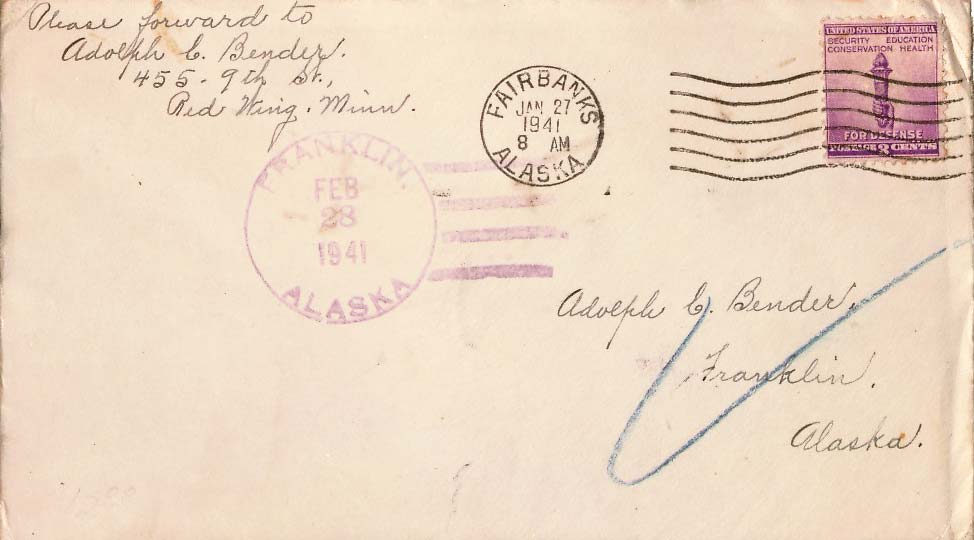 Please forward to
Adolph C. Bender.
455 - 9th St.,
Red Wing. Minn.
UNITED STATES OF AMERICA
SECURITY EDUCATION
CONSERVATION HEALTH
FOR DEFENSE
POSTAGE 3 CENTS
FAIRBANKS
JAN 27
1941
8 AM
ALASKA
FRANKLIN.
FEB
28
1941
ALASKA
Adolph C. Bender,
Franklin.
Alaska.